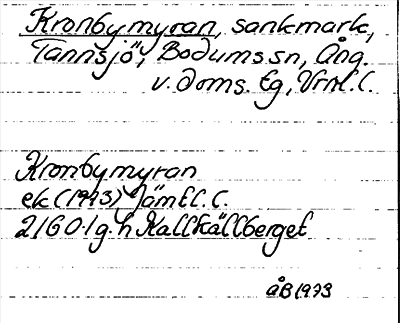 Kronbymyran, sankmark,
Tannsjö, Bodums sn, Ång.
v. doms. Eg, Vrml. C.
Kronbymyran
ek (1973) Jämtl. C.
2160·1 g.h Kallkällberget
åB 1973